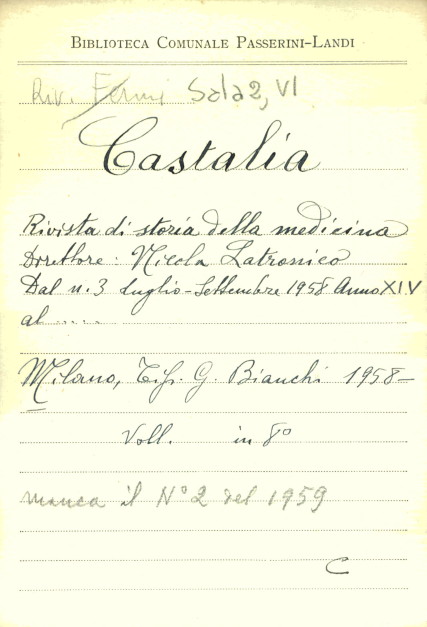 BIBLIOTECA COMUNALE PASSERINI-LANDI
Riv. Fermi Sala 2, VI
Castalia
Rivista di storia della medicina
Direttore: Nicola Latronico
Dal n. 3 Luglio-Settembre 1958 Anno XIV
al .....
Milano, Tip. G. Bianchi 1958-
Voll. in 8°
manca il N° 2 del 1959
C